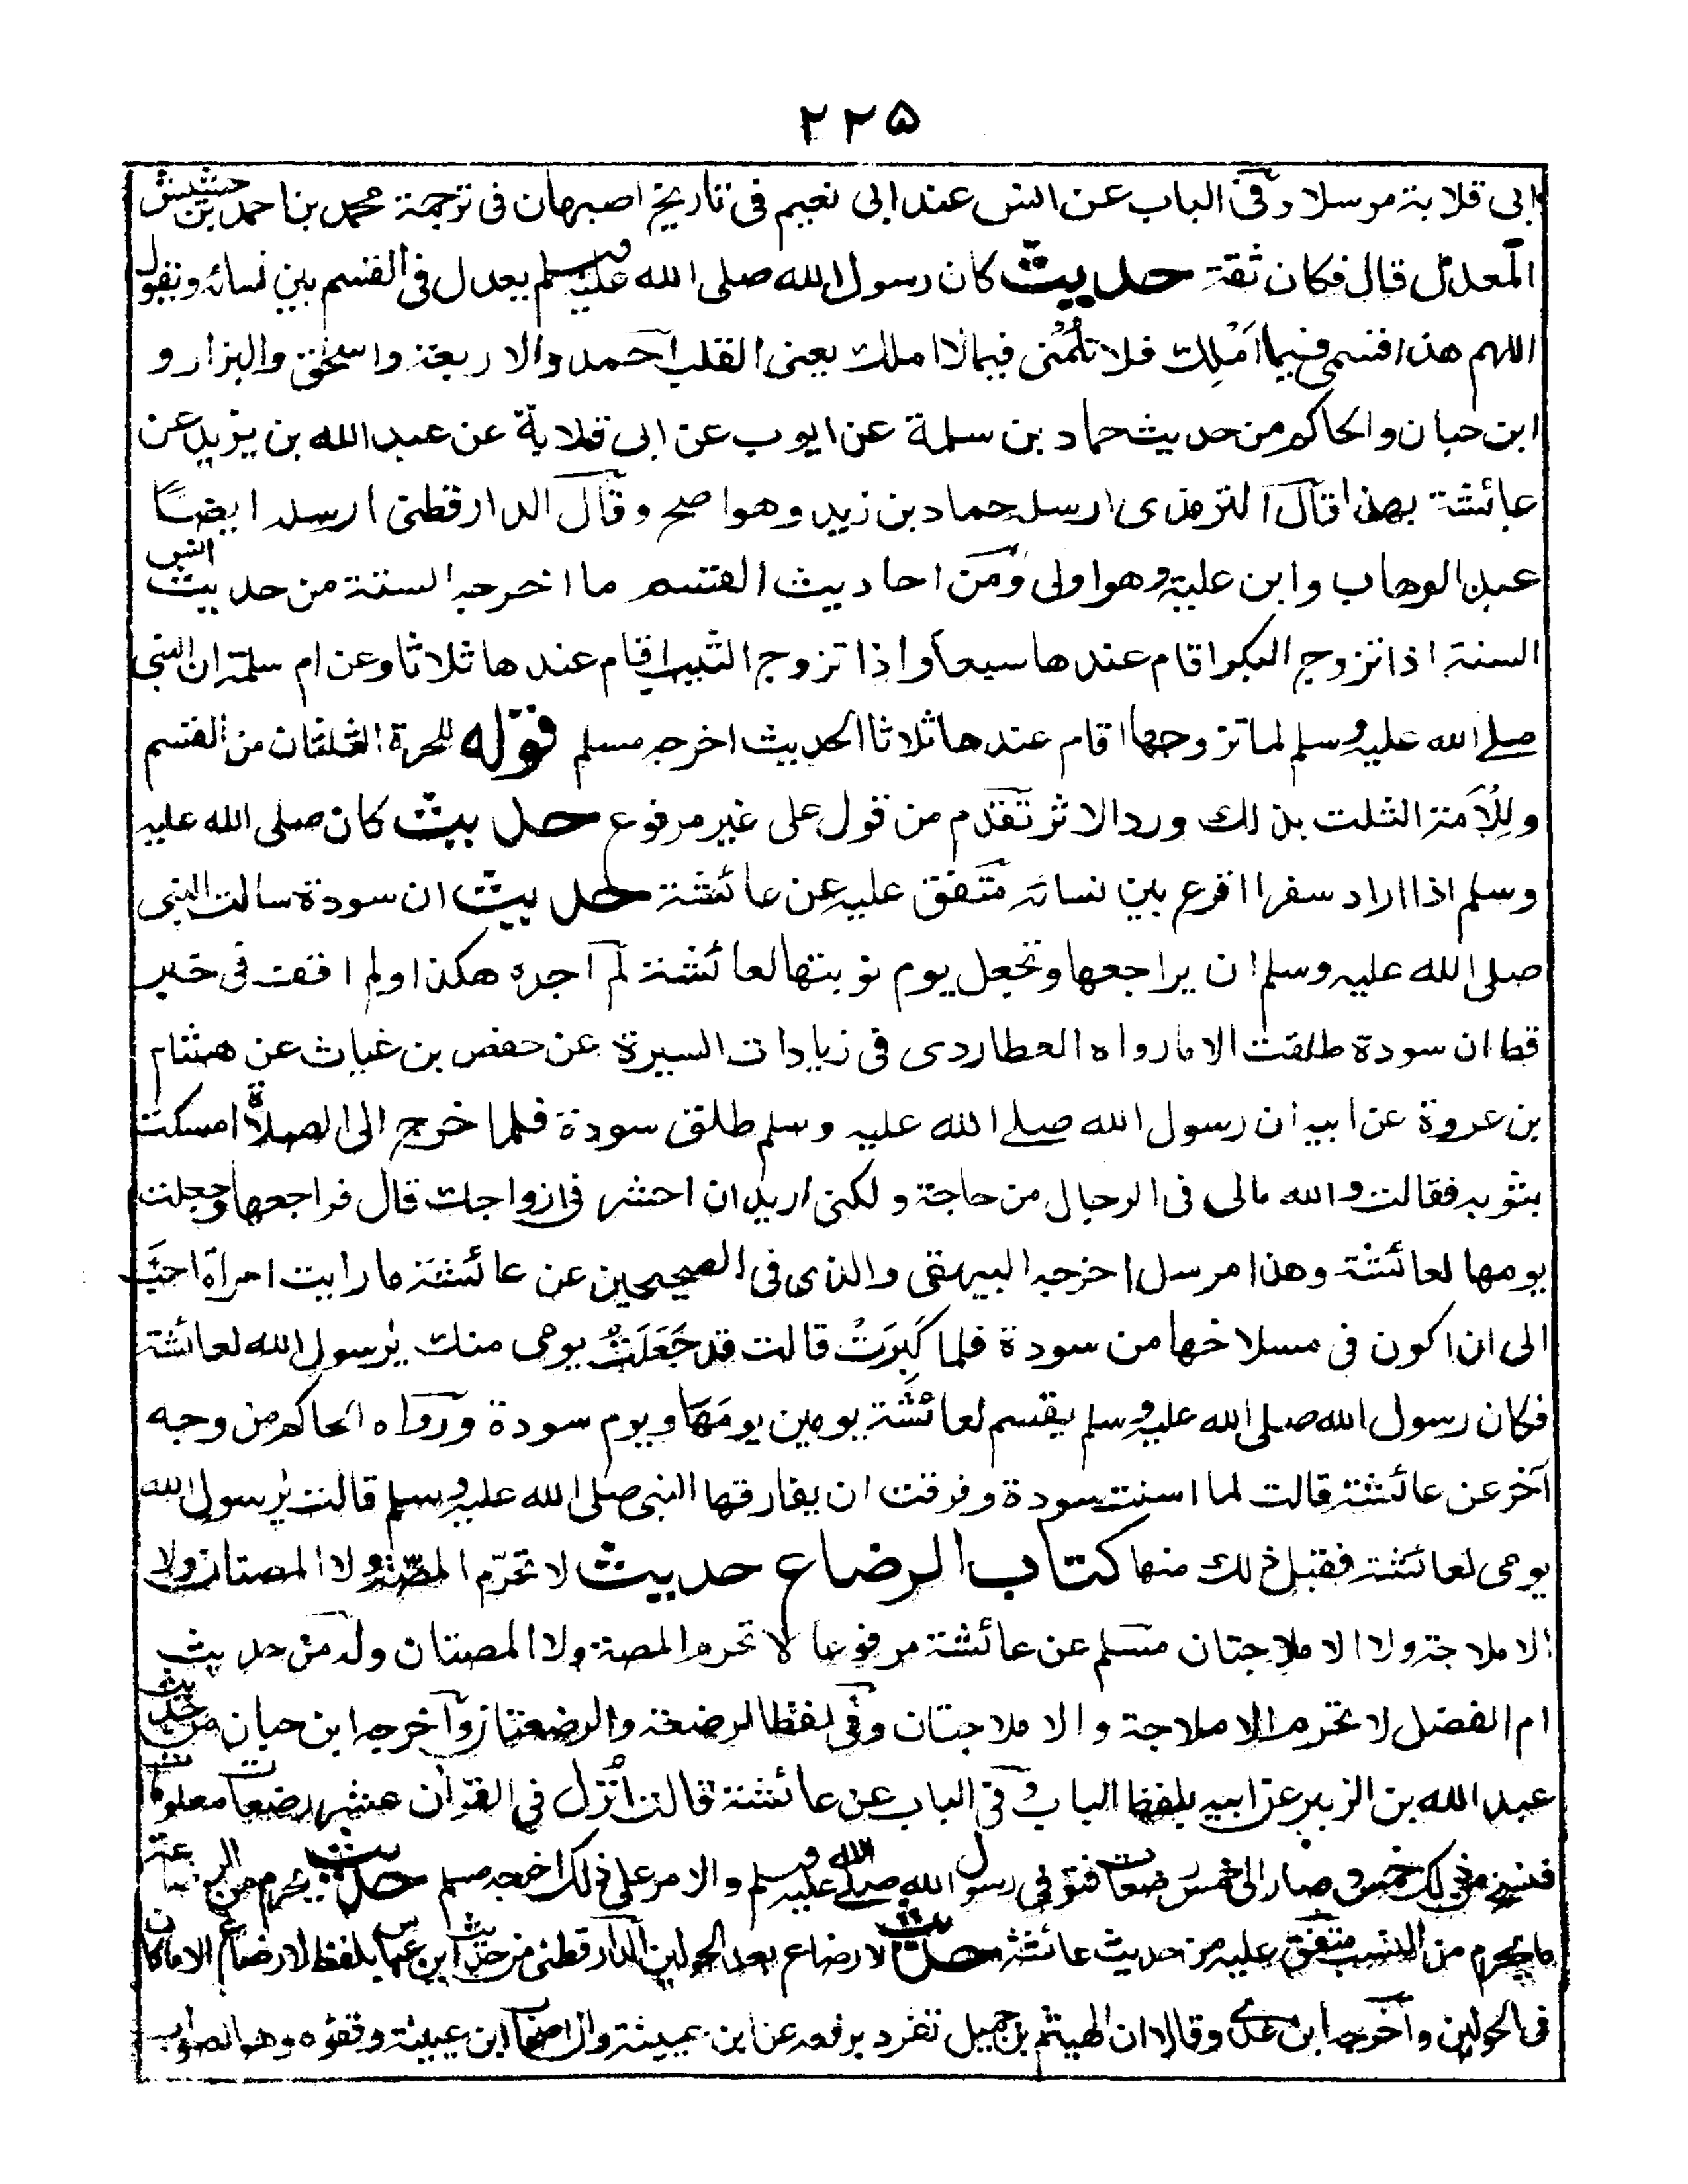 ٢٢٥
ابى قلابة مرسلا وفى الباب عن انس عند ابى نعيم فى تاريخ اصبهان فى ترجمة محمد بن احمد بن حشيش
المعدل قال فكان ثقة حديث كان رسول الله صلى الله عليه وسلم يعدل فى القسم بين نسائه ويقول
اللهم هذا قسمى فيما اَمْلِك فلا تَلُمْنى فيما لا املك يعنى القلب احمد والاربعة واسحٰق والبزار و
ابن حبان والحاكم من حديث حماد بن سلمة عن ايوب عن ابى قلابة عن عبد الله بن يزيد عن
عائشة بهذا قال الترمذى ارسله حماد بن زيد وهو اصح وقال الدارقطنى ارسله ايضًا
عبد الوهاب وابن علية وهو اولى ومن احاديث القسم ما اخرجه الستة من حديث انس
السنة اذا تزوج البكر اقام عندها سبعا واذا تزوج الثيب اقام عندها ثلاثا وعن ام سلمة ان النبى
صلے الله عليه وسلم لما تزوجها اقام عندها ثلاثا الحديث اخرجه مسلم قوله للحرة الثلثان من القسم
وللأمة الثلث بذلك ورد الاثر تقدم من قول على غير مرفوع حديث كان صلى الله عليه
وسلم اذا اراد سفرا اقرع بين نسائه متفق عليه عن عائشة حديث ان سودة سالت النبى
صلى الله عليه وسلم ان يراجعها وتجعل يوم نوبتها لعائشة لم اجده هكذا ولم اقف فى خبر
قط ان سودة طلقت الا ما رواه العطاردى فى زيادات السيرة عن حفص بن غياث عن هشام
بن عروة عن ابيه ان رسول الله صلے الله عليه وسلم طلق سودة فلما خرج الى الصلاة امسكت
بثوبه فقالت والله مالى فى الرجال من حاجة ولكنى اريد ان احشر فى ازواجك قال فراجعها وجعلت
يومها لعائشة وهذا مرسل اخرجه البيهقى والذى فى الصحيحين عن عائشة ما رايت امراة احبَّ
الى ان اكون فى مسلاخها من سودة فلما كَبِرَتْ قالت قد جَعَلَتُ يومى منك يٰرسول الله لعائشة
فكان رسول الله صلى الله عليه وسلم يقسم لعائشة يومين يومَهَا ويوم سودة ورواه الحاكم من وجه
آخر عن عائشة قالت لما اسنت سودة وفرقت ان يفارقها النبى صلى الله عليه وسلم قالت يٰرسول الله
يومى لعائشة فقبل ذلك منها كتاب الرضاع حديث لا تحرّم المصّة ولا المصتان ولا
الاملاجة ولا الاملاجتان مسلم عن عائشة مرفوعا لا تحرم المصة ولا المصتان وله من حديث
ام الفضل لا تحرم الاملاجة والاملاجتان وفى لفظ الرضعة والرضعتان واخرجه ابن حبان من حديث
عبد الله بن الزبير عن ابيه بلفظ الباب وفى الباب عن عائشة قالت اُنزل فى القرآن عشر رضعات معلومات
فنسخ من ذلك خمس وصار الى خمس رضعات فتوفى رسول الله صلے الله عليه وسلم والامر على ذلك اخرجه مسلم حديث يحرم من الرضاعة
ما يحرم من النسب متفق عليه من حديث عائشة حديث لا رضاع بعد الحولين الدارقطنى من حديث ابن عباس بلفظ لا رضاع الا ما كان
فى الحولين واخرجه ابن عدى وقالا ان الهيثم بن جميل تفرد برفعه عن ابن عيينة وان اصحاب ابن عيينة وقفوه وهو الصواب